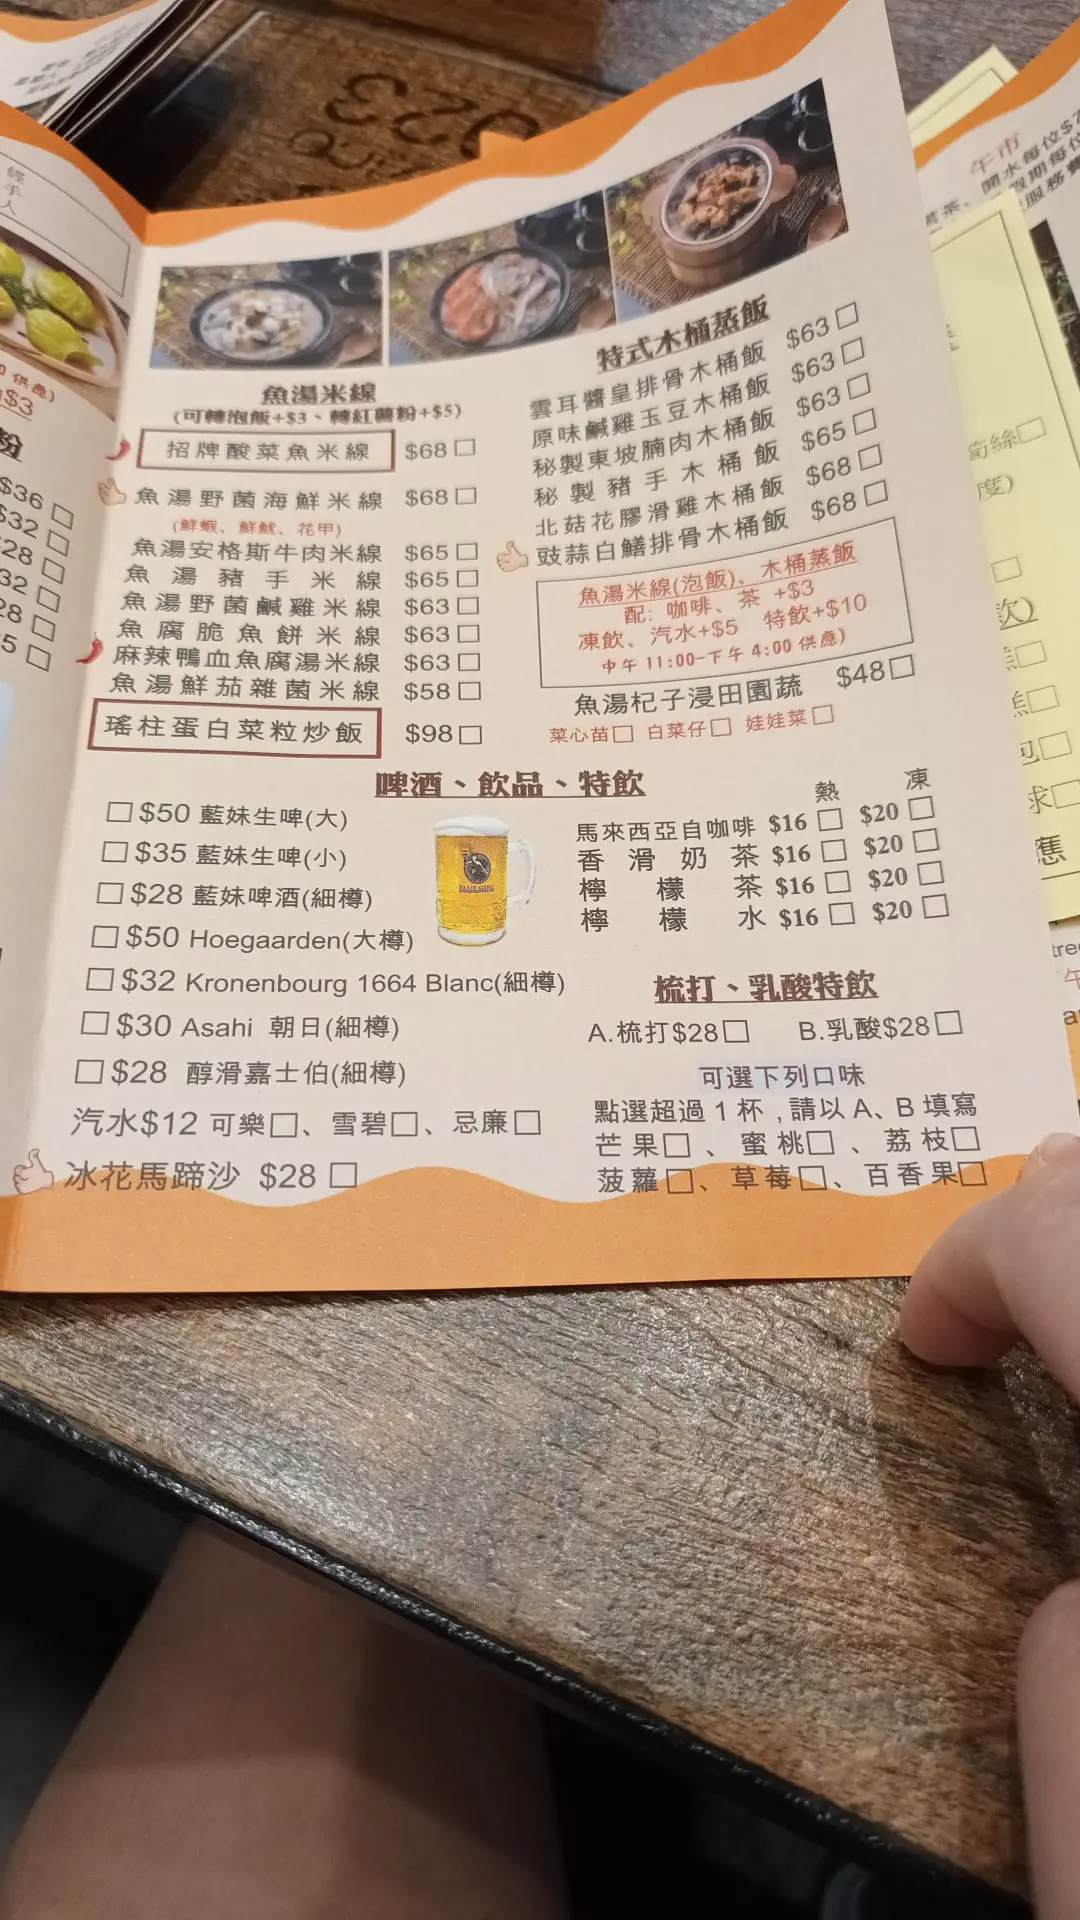 經手人
供應)
$3
粉
$36
$32
$28
$32
$28
魚湯米線
(可轉泡飯+$3、轉紅薯粉+$5)
招牌酸菜魚米線 $68
魚湯野菌海鮮米線 $68
(鮮蝦、鮮魷、花甲)
魚湯安格斯牛肉米線 $65
魚湯豬手米線 $65
魚湯野菌鹹雞米線 $63
魚腐脆魚餅米線 $63
麻辣鴨血魚腐湯米線 $63
魚湯鮮茄雜菌米線 $58
瑤柱蛋白菜粒炒飯 $98
特式木桶蒸飯
雲耳醬皇排骨木桶飯 $63
原味鹹雞玉豆木桶飯 $63
秘製東坡腩肉木桶飯 $63
秘製豬手木桶飯 $65
北菇花膠滑雞木桶飯 $68
豉蒜白鱔排骨木桶飯 $68
魚湯米線(泡飯)、木桶蒸飯
配: 咖啡、茶 +$3
凍飲、汽水+$5 特飲+$10
中午 11:00-下午 4:00 供應)
魚湯杞子浸田園蔬 $48
菜心苗□ 白菜仔□ 娃娃菜□
啤酒、飲品、特飲
□$50 藍妹生啤(大)
□$35 藍妹生啤(小)
□$28 藍妹啤酒(細樽)
□$50 Hoegaarden(大樽)
□$32 Kronenbourg 1664 Blanc(細樽)
□$30 Asahi 朝日(細樽)
□$28 醇滑嘉士伯(細樽)
汽水$12 可樂□、雪碧□、忌廉□
冰花馬蹄沙 $28 □
BLUE GIRL
熱 凍
馬來西亞自咖啡 $16 □ $20 □
香滑奶茶 $16 □ $20 □
檸檬茶 $16 □ $20 □
檸檬水 $16 □ $20 □
梳打、乳酸特飲
A.梳打$28□ B.乳酸$28□
可選下列口味
點選超過 1 杯,請以 A、B 填寫
芒果□、蜜桃□、荔枝□
菠蘿□、草莓□、百香果□
午市